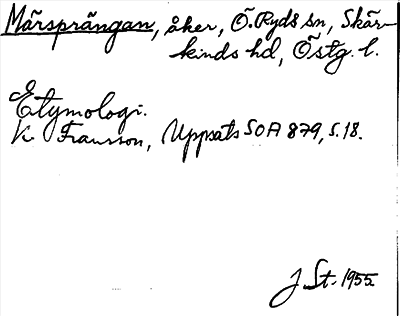 Märsprängan, åker, Ö. Ryds sn, Skär-
kinds hd, Östg. l.
Etymologi.
K. Fransson, Uppsats SOA 879, s. 18.
J St. 1955